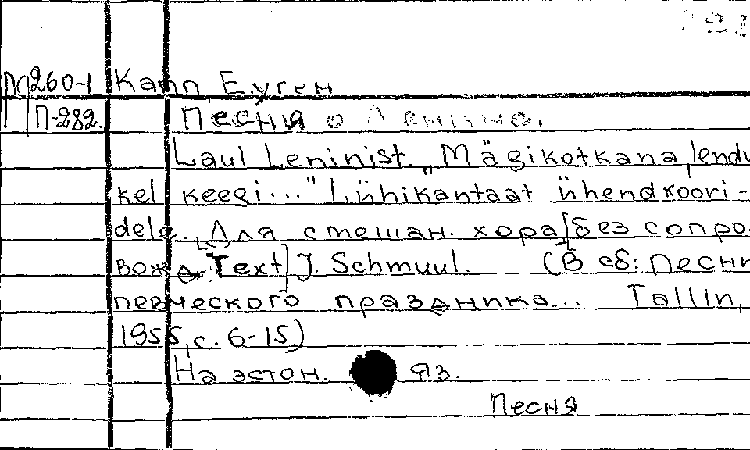 П260-1 Капп Еуген
П-282. Песня о Ленине.
Laul Leninist. "Mägikotkana lendu
kel keegi..." Lühikantaat ühendkoori-
dele. Для смешан. хора [без сопро
вожд. Text] J. Schmuul. (В сб: Песни
певческого праздника... Tallin,
1955, с. 6-15)
На эстон. яз.
Песня